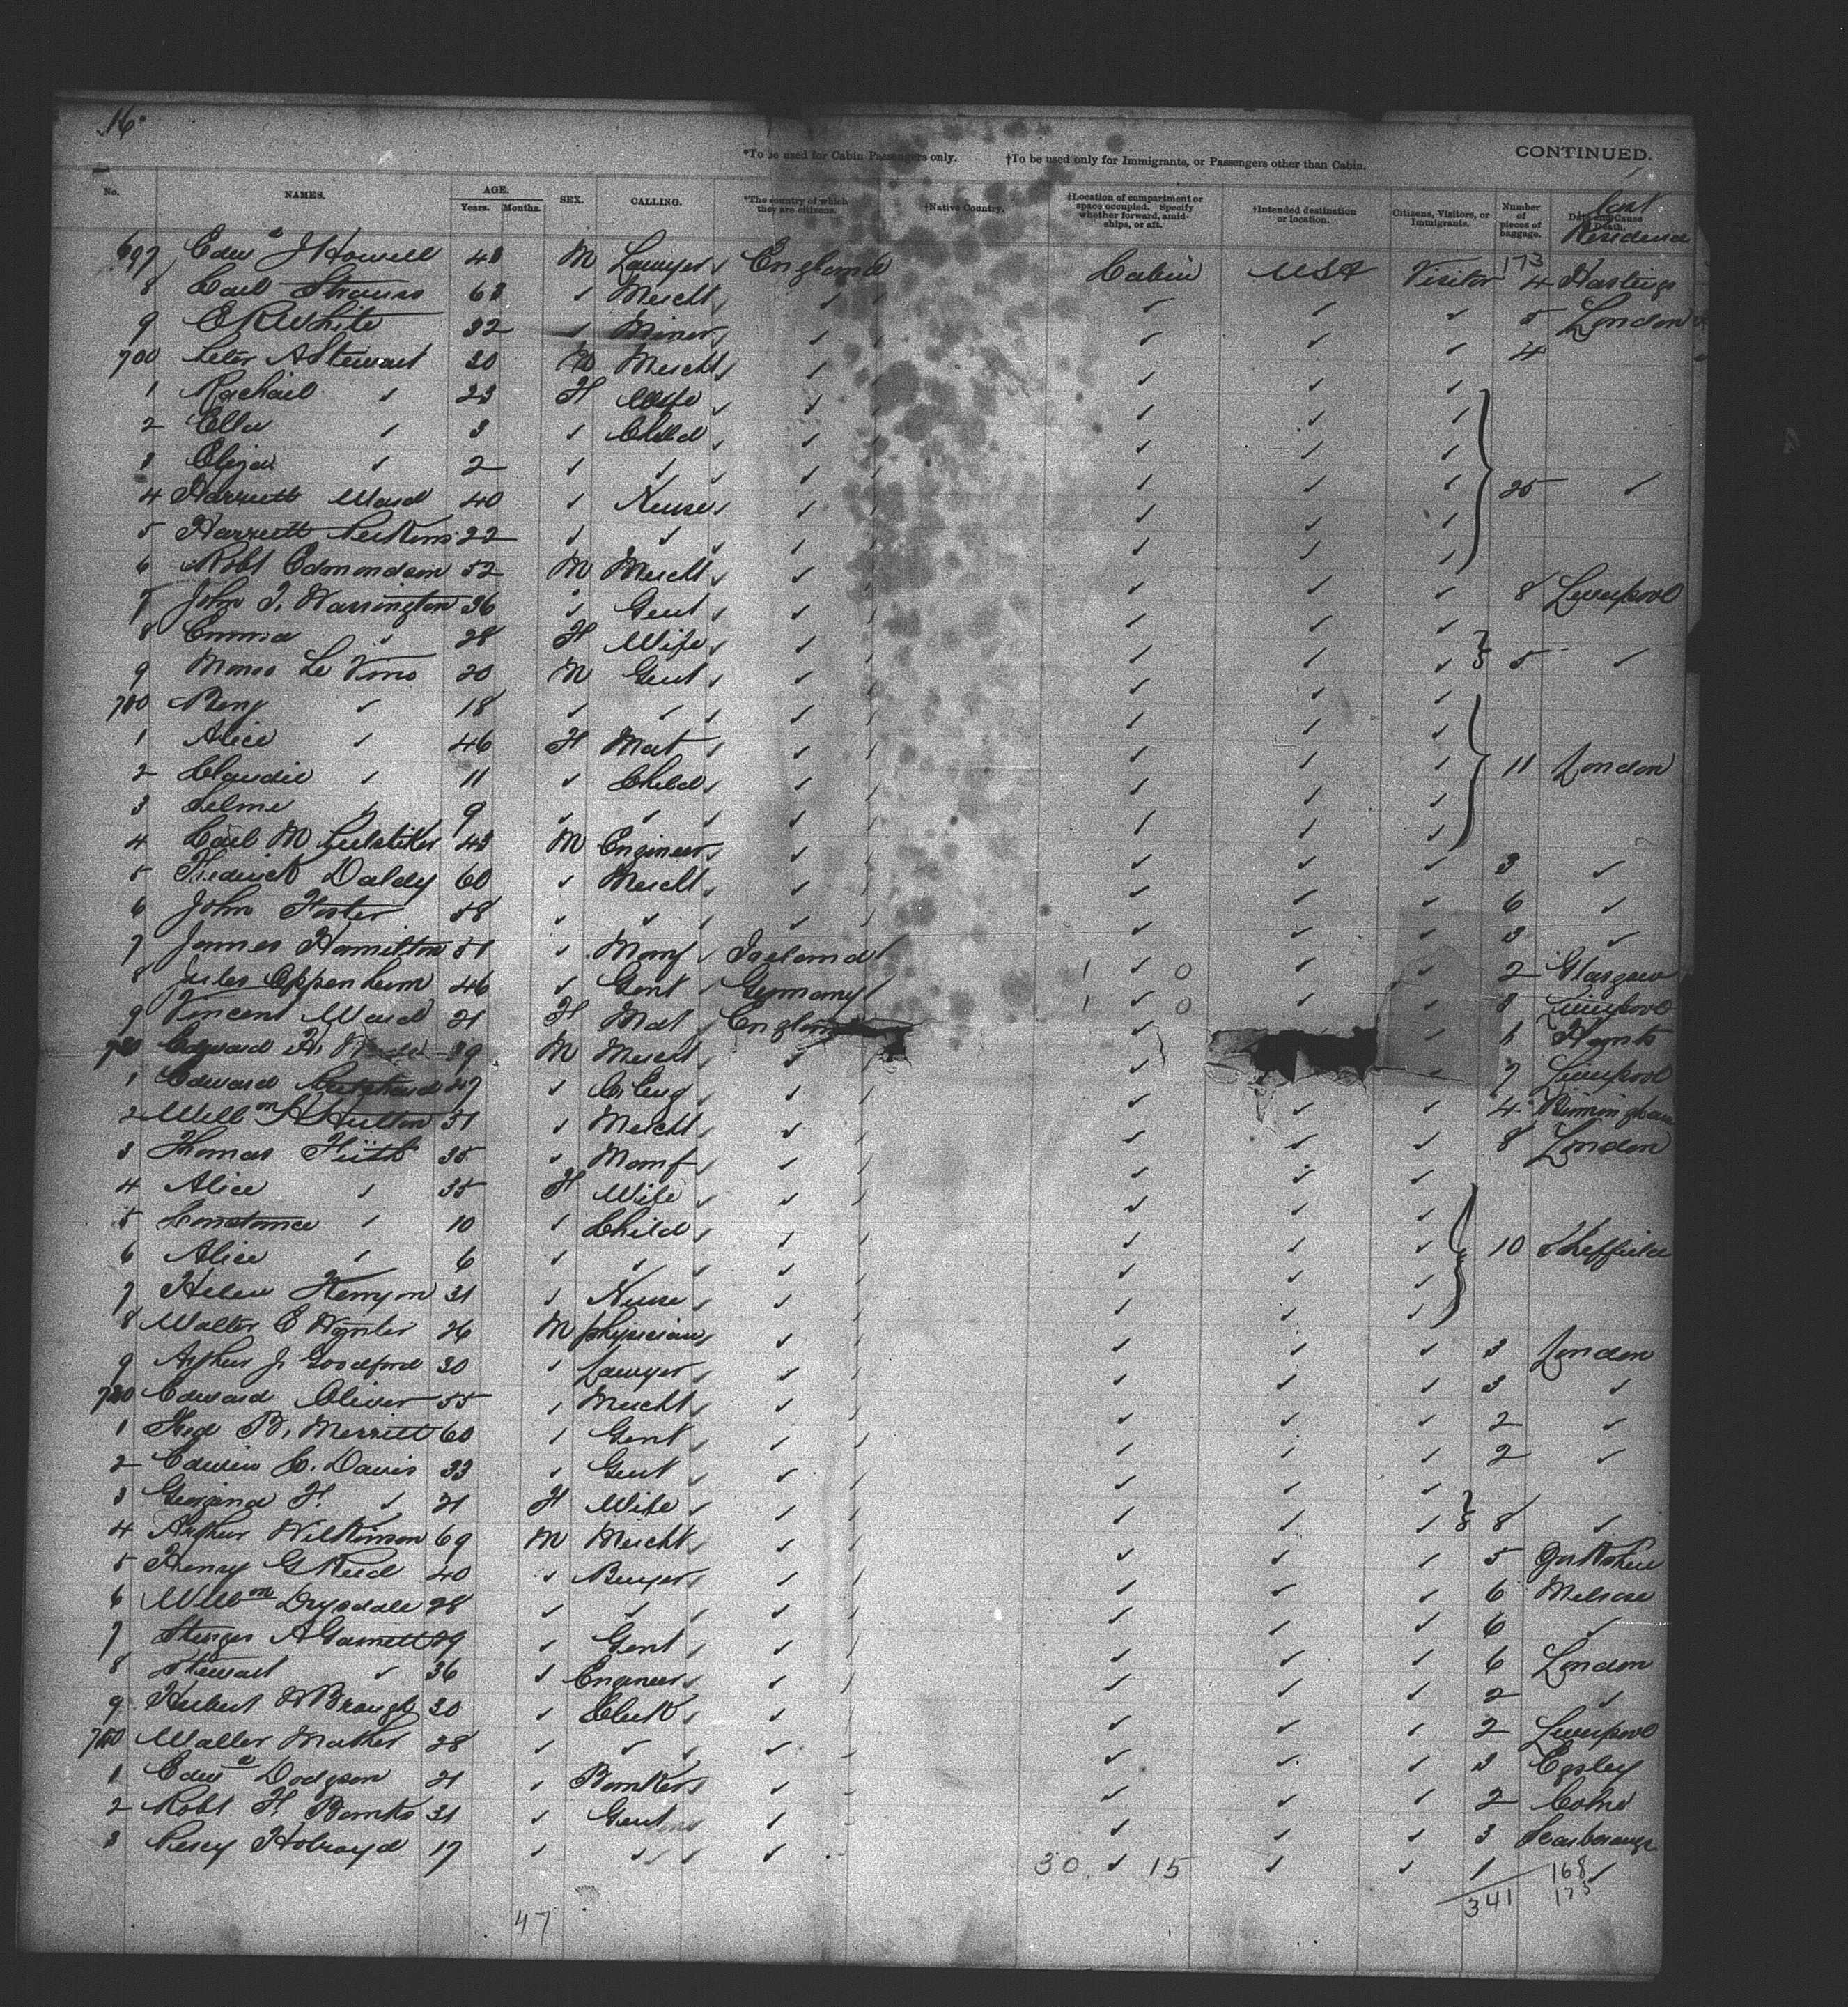 16
*To be used for Cabin Passengers only. †To be used only for Immigrants, or Passengers other than Cabin. CONTINUED.
No. NAMES. AGE. Years. Months. SEX. CALLING. *The country of which they are citizens. †Native Country. †Location of compartment or space occupied. Specify whether forward, amid-ships, or aft. †Intended destination or location. Citizens, Visitors, or Immigrants. Number of pieces of baggage. Date and Cause of Death. Last Residence
173
697 Edwd J Howell 48 M Lawyer England Cabin USA Visitor 4 Hastings
8 Carl Strauss 63 ✓ Mercht ✓ ✓ ✓ ✓ 5 London
9 E R White 32 ✓ Miner ✓ ✓ ✓ ✓ 4
700 Peter A Stewart 30 M Mercht ✓ ✓ ✓ ✓
1 Rachael ✓ 23 F Wife ✓ ✓ ✓ ✓
2 Ella ✓ 3 ✓ Child ✓ ✓ ✓ ✓
3 Eliza ✓ 2 ✓ ✓ ✓ ✓ ✓ ✓ 25 ✓
4 Harriett Ward 40 ✓ Nurse ✓ ✓ ✓ ✓
5 Harriett Perkins 22 ✓ ✓ ✓ ✓ ✓ ✓
6 Robt Edmondson 52 M Mercht ✓ ✓ ✓ ✓ 8 Liverpool
7 John T. Warrington 36 ✓ Gent ✓ ✓ ✓ ✓
8 Emma ✓ 28 F Wife ✓ ✓ ✓ ✓ 5 5 ✓
9 Le Vino 20 M Gent ✓ ✓ ✓ ✓
710 Benj ✓ 18 ✓ ✓ ✓ ✓ ✓ ✓
1 Alice ✓ 46 F Mat ✓ ✓ ✓ ✓ 11 London
2 Claudie ✓ 11 ✓ Child ✓ ✓ ✓ ✓
3 Selme ✓ 9 ✓ ✓ ✓ ✓ ✓ ✓
4 Carl M 43 M Engineer ✓ ✓ ✓ ✓ 3 ✓
5 Frederick Daldy 60 ✓ Mercht ✓ ✓ ✓ ✓ 6 ✓
6 John Foster 58 ✓ ✓ ✓ ✓ ✓ ✓ 3 ✓
7 James Hamilton 51 ✓ Manf Ireland 1 ✓ 0 ✓ ✓ 2 Glasgow
8 Jules Oppenheim 46 ✓ Gent Germany 1 ✓ 0 ✓ ✓ 8 Liverpool
9 Vincent Ward 21 F Mat England ✓ ✓ 1 Hants
720 Edward H. 39 M Mercht ✓ ✓ ✓ 7 Liverpool
1 Edward 47 ✓ C. Eng ✓ ✓ ✓ ✓ 4 Birmingham
2 Willm H Hulton 31 ✓ Mercht ✓ ✓ ✓ ✓ 8 London
3 Thomas Firth 35 ✓ Manf ✓ ✓ ✓ ✓
4 Alice ✓ 35 F Wife ✓ ✓ ✓ ✓
5 Constance ✓ 10 ✓ Child ✓ ✓ ✓ ✓ 10 Sheffield
6 Alice ✓ 6 ✓ ✓ ✓ ✓ ✓ ✓
7 Helen Kenyon 31 ✓ Nurse ✓ ✓ ✓ ✓
8 Walter E Wynter 26 M Physician ✓ ✓ ✓ ✓ 3 London
9 Arthur J. Goodford 30 ✓ Lawyer ✓ ✓ ✓ ✓ 3 ✓
730 Edward Oliver 55 ✓ Mercht ✓ ✓ ✓ ✓ 2 ✓
1 Fred B. Merritt 60 ✓ Gent ✓ ✓ ✓ ✓ 2 ✓
2 Edwin C. Davis 33 ✓ Gent ✓ ✓ ✓ ✓
3 Georgina F. ✓ 21 F Wife ✓ ✓ ✓ ✓ 8 8 ✓
4 Arthur Wilkinson 69 M Mercht ✓ ✓ ✓ ✓ 5 Yorkshire
5 Henry G Reid 40 ✓ Buyer ✓ ✓ ✓ ✓ 6 Melrose
6 Willm Drysdale 28 ✓ ✓ ✓ ✓ ✓ ✓ 6 ✓
7 Sturges A Garnett 29 ✓ Gent ✓ ✓ ✓ ✓ 6 London
8 Stewart ✓ 36 ✓ Engineer ✓ ✓ ✓ ✓ 2 ✓
9 Herbert W Brough 30 ✓ Clerk ✓ ✓ ✓ ✓ 2 Liverpool
740 Walter Mather 28 ✓ ✓ ✓ ✓ ✓ ✓ 3 Egsley
1 Edwd Dodgson 21 ✓ Banker ✓ ✓ ✓ ✓ 2 Colne
2 Robt H. Banks 31 ✓ Gent ✓ ✓ ✓ ✓ 3 Scarborough
3 Percy Holroyd 17 ✓ ✓ ✓ 30 ✓ 15 ✓ ✓ 1 ✓
168
47 341 173